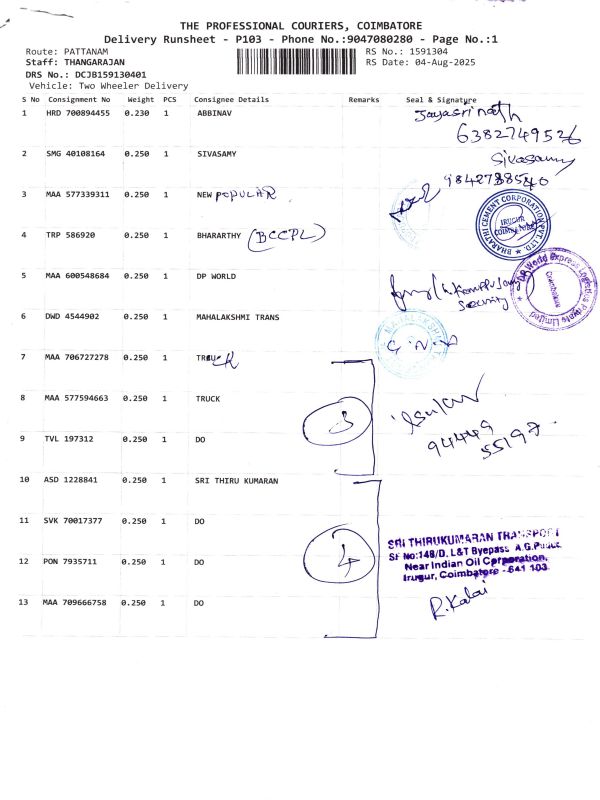 THE PROFESSIONAL COURIERS, COIMBATORE
Delivery Runsheet - P103 - Phone No.:9047080280 - Page No.:1
Route: PATTANAM
RS No.: 1591304
Staff: THANGARAJAN
RS Date: 04-Aug-2025
DRS No.: DCJB159130401
Vehicle: Two Wheeler Delivery
S No Consignment No Weight PCS Consignee Details Remarks Seal & Signature
1 HRD 700894455 0.230 1 ABBINAV Jayasrinath
6382749526
2 SMG 40108164 0.250 1 SIVASAMY Sivasamy
9842788540
3 MAA 577339311 0.250 1 NEW POPULAR
BHARATHI CEMENT CORPORATION PVT. LTD.
IRUGUR
4 TRP 586920 0.250 1 BHARARTHY (BCCPL)
5 MAA 600548684 0.250 1 DP WORLD
Security
DP World Express Logistics Private Limited
Coimbatore
6 DWD 4544902 0.250 1 MAHALAKSHMI TRANS
MAHALAKSHMI
7 MAA 706727278 0.250 1 TRUCK
8 MAA 577594663 0.250 1 TRUCK
3
94449
55197
9 TVL 197312 0.250 1 DO
10 ASD 1228841 0.250 1 SRI THIRU KUMARAN
11 SVK 70017377 0.250 1 DO
SRI THIRUKUMARAN TRANSPORT
SF No:148/D. L&T Byepass A.G.Pudur,
Near Indian Oil Corporation,
Irugur, Coimbatore - 641 103
12 PON 7935711 0.250 1 DO
4
R.Kalai
13 MAA 709666758 0.250 1 DO